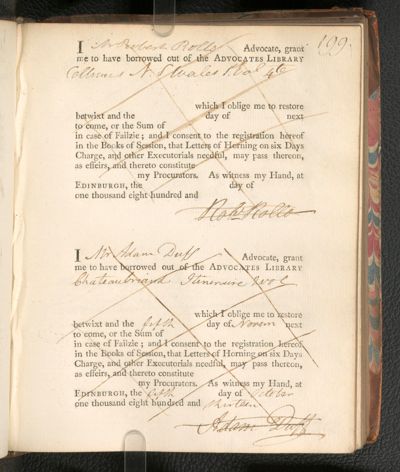 199.
I Mr Robert Rolls Advocate, grant
me to have borrowed out of the ADVOCATES LIBRARY
N. 1 Vol 4to
which I oblige me to restore
betwixt and the day of next
to come, or the Sum of
in case of Failzie; and I consent to the registration hereof
in the Books of Session, that Letters of Horning on six Days
Charge, and other Executorials needful, may pass thereon,
as effeirs, and thereto constitute
my Procurators. As witness my Hand, at
EDINBURGH, the day of
one thousand eight hundred and
Robt Rolls
I Mr Adam Duff Advocate, grant
me to have borrowed out of the ADVOCATES LIBRARY
Chateaubriand Itineraire vol
which I oblige me to restore
betwixt and the fifth day of Novem next
to come, or the Sum of
in case of Failzie; and I consent to the registration hereof
in the Books of Session, that Letters of Horning on six Days
Charge, and other Executorials needful, may pass thereon,
as effeirs, and thereto constitute
my Procurators. As witness my Hand, at
EDINBURGH, the fifth day of October
one thousand eight hundred and thirteen
Adam Duff